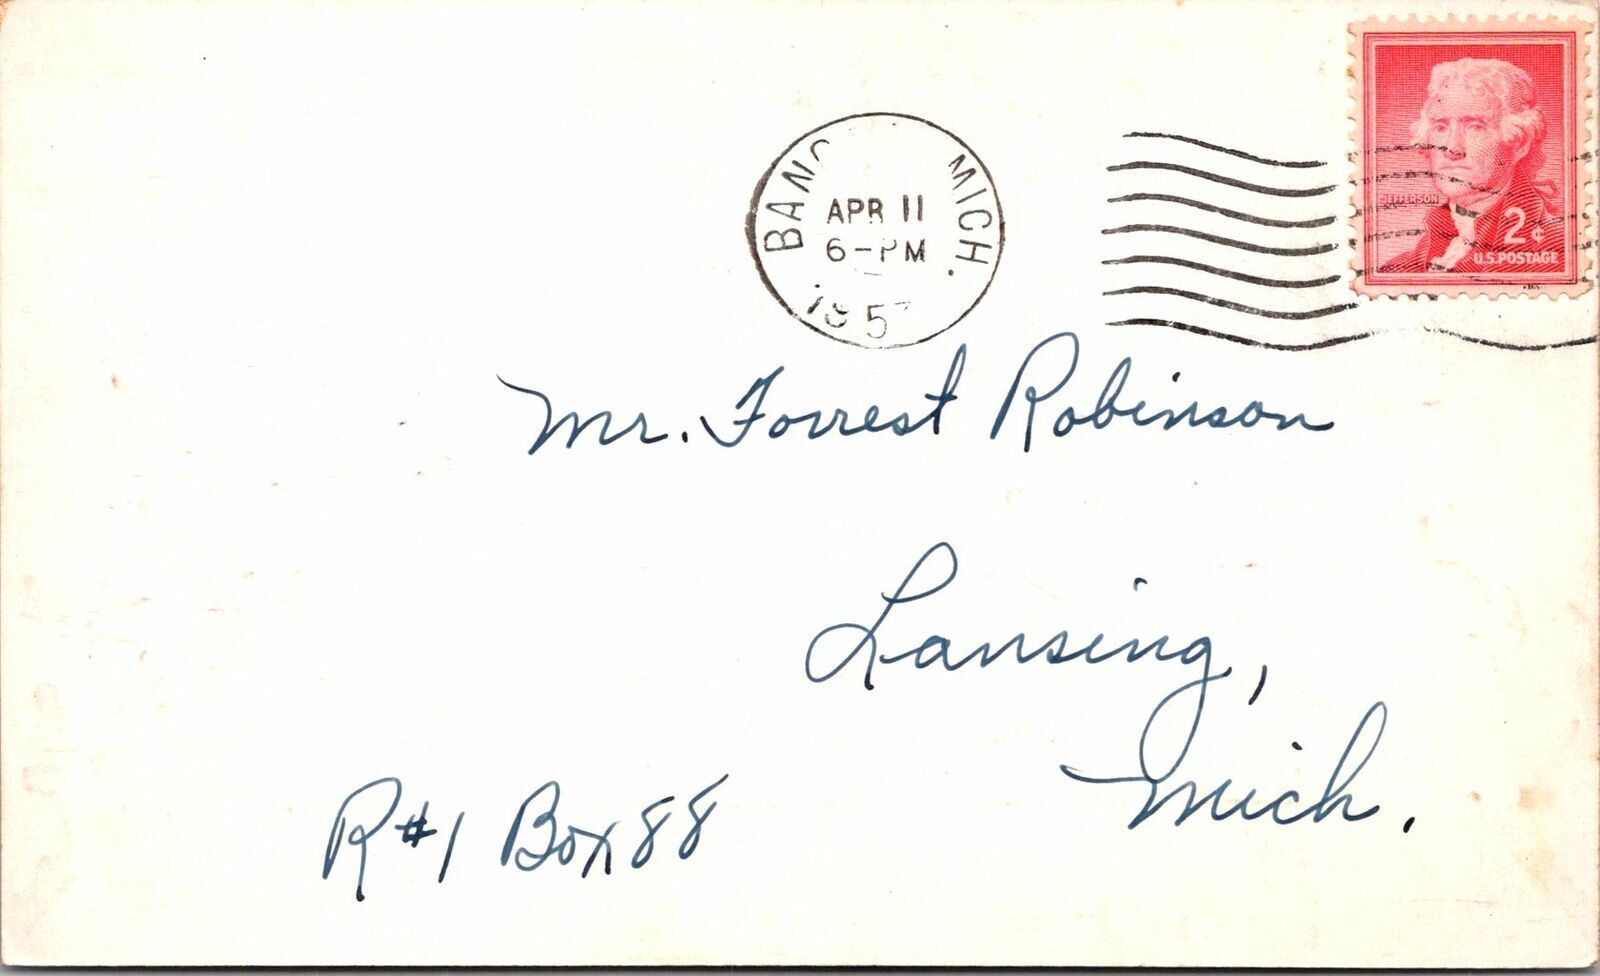 MICH.
APR 11
6-PM
JEFFERSON
2¢
U.S.POSTAGE
Mr. Forrest Robinson
Lansing,
Mich.
R#1 Box 88